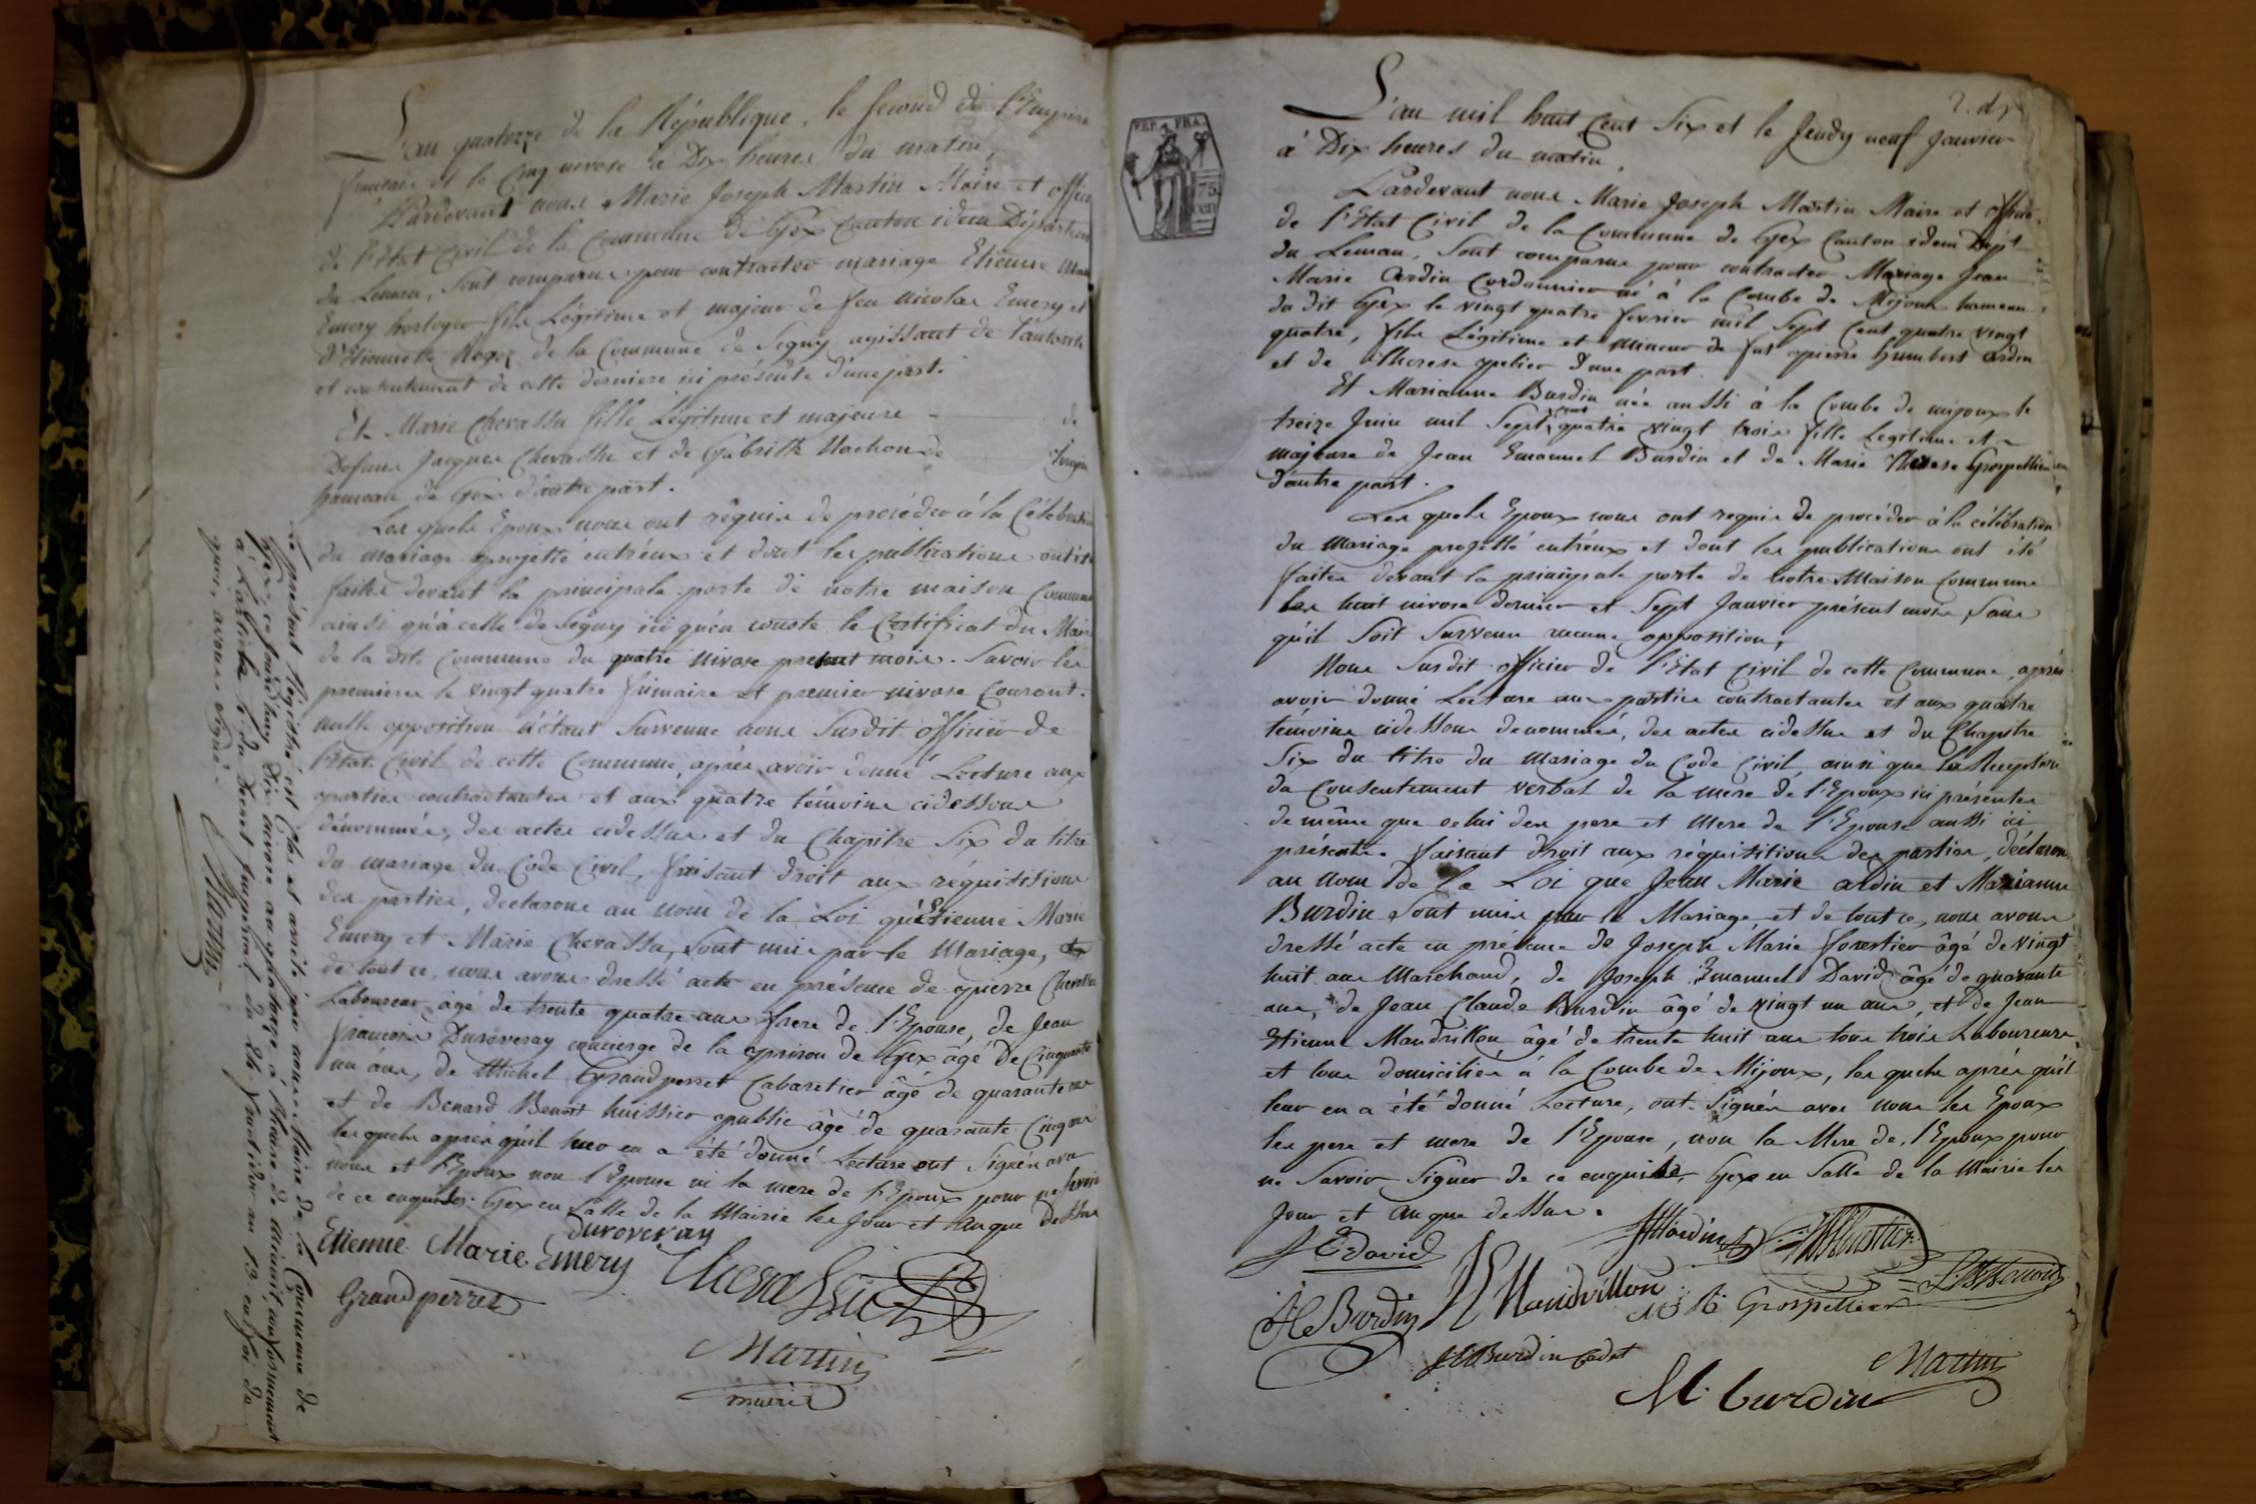 L'an quatorze de la République, le second de l'Empire
français et le cinq nivose à Dix heures du matin,
Pardevant nous Marie Joseph Martin Maire et offici
de l'Etat Civil de la Commune de Gex Canton idem Départem
du Leman, Sont comparus pour contracter mariage Etienne Ma
Emery horloger fils Légitime et majeur de feu Nicolas Emery et
d'Etiennette Rogoz de la Commune de Segny agissant de l'autorité
et consentement de cette derniere ici présente d'une part.
Et Marie Chevassu fille Légitime et majeure de
Defunt Jacques Chevassu et de Gabrielle Machon de
hameau de Gex d'autre part.
Les quels Epoux nous ont réquis de procéder à la Célébrati
du mariage projetté entr'eux et dont les publications ont été
faites devant la principale porte de notre maison Commune
ainsi qu'à celle de Segny ici qu'en conste le Certificat du Maire
de la dite Commune du quatre Nivose présent mois. Savoir les
premieres le vingt quatre frimaire et premier nivose Courant.
nulle opposition n'étant Survenue nous Susdit officier de
l'Etat Civil de cette Commune, après avoir donné Lecture aux
parties contractantes et aux quatre témoins cidessous
dénommés, des actes cidessus et du Chapitre Six du titre
du mariage du Code Civil, faisant droit aux réquisitions
des parties, déclarons au nom de la Loi qu'Etienne Marie
Emery et Marie Chevassu, Sont unis par le Mariage, et
de tout ce, nous avons dressé acte en présence de pierre Chevassu
Laboureur âgé de trente quatre ans frere de l'Epouse, de Jean
francois Duroveray concierge de la prison de Gex âgé de Cinquante
un ans, de Michel Grandperret Cabaretier âgé de quarante ans
et de Benard Benoit huissier public âgé de quarante Cinq ans
les quels après qu'il leur en a été donné Lecture ont Signés avec
nous et l'Epoux non l'Epouse ni la mere de l'Epoux pour ne Savoir
de ce enquises. Gex en Salle de la Mairie les Jour et an que Dessus
Duroveray
Etienne Marie Emery Chevassu
Grandperret
Martin
maire
Le présent Régistre est Clos et arrêté par nous Maire de la Commune de
Gex ce Jourd'huy dix nivose an quatorze à l'heure de Minuit, conformement
à l'article 1er du Decret Impérial du 24 fructidor an 13 en foi du
quoi, avons signé.
Martin
2. d
L'an mil huit Cent Six et le Jeudy neuf Janvier
à Dix heures du matin,
REP. FRA.
75
CEN
Pardevant nous Marie Joseph Martin Maire et officier
de l'Etat Civil de la Commune de Gex Canton idem Dépt
du Leman, Sont comparus pour contracter Mariage Jean
Marie Ardin Cordonnier né à la Combe de Mijoux hameau
du dit Gex le vingt quatre fevrier mil Sept Cent quatre vingt
quatre, fils Légitime et Mineur de fut pierre humbert Ardin
et de Therese pelier d'une part.
Et Marianne Burdin née aussi à la Combe de mijoux le
treize Juin mil Sept Cent quatre vingt trois fille Legitime et
majeure de Jean Emanuel Burdin et de Marie Therese Grospellier
d'autre part.
Les quels Epoux nous ont requis de procéder à la célébration
du Mariage projetté entr'eux et dont les publications ont été
faites devant la principale porte de notre Maison Commune
les huit nivose dernier et Sept Janvier présent mois Sans
qu'il Soit Survenu aucune opposition,
Nous Susdit officier de l'Etat Civil de cette Commune, après
avoir donné Lecture aux parties contractantes et aux quatre
témoins cidessous denommés, des actes cidessus et du Chapitre
Six du titre du Mariage du Code Civil, ainsi que la Reception
du Consentement verbal de la mere de l'Epoux ici présentes
de même que celui des pere et Mere de l'Epouse aussi ici
présents. faisant droit aux réquisitions des parties, déclarons
au nom de la Loi que Jean Marie ardin et Marianne
Burdin Sont unis par le Mariage, et de tout ce, nous avons
dressé acte en présence de Joseph Marie forestier âgé de vingt
huit ans Marchand, de Joseph Emanuel David âgé de quarante
ans, de Jean Claude Burdin âgé de vingt un ans, et de Jean
Etienne Mandrillon âgé de trente huit ans tous trois Laboureurs,
et tous domiciliés à la Combe de Mijoux, les quels après qu'il
leur en a été donné Lecture, ont Signés avec nous les Epoux
les pere et mere de l'Epouse, non la Mere de l'Epoux pour
ne Savoir Signer de ce enquise, Gex en Salle de la Mairie les
Jour et an que dessus.
J E David JMardin
JC Burdin JE Mandrillon M T Grospellier
JE Burdin Cadet
Martin
M. burdin